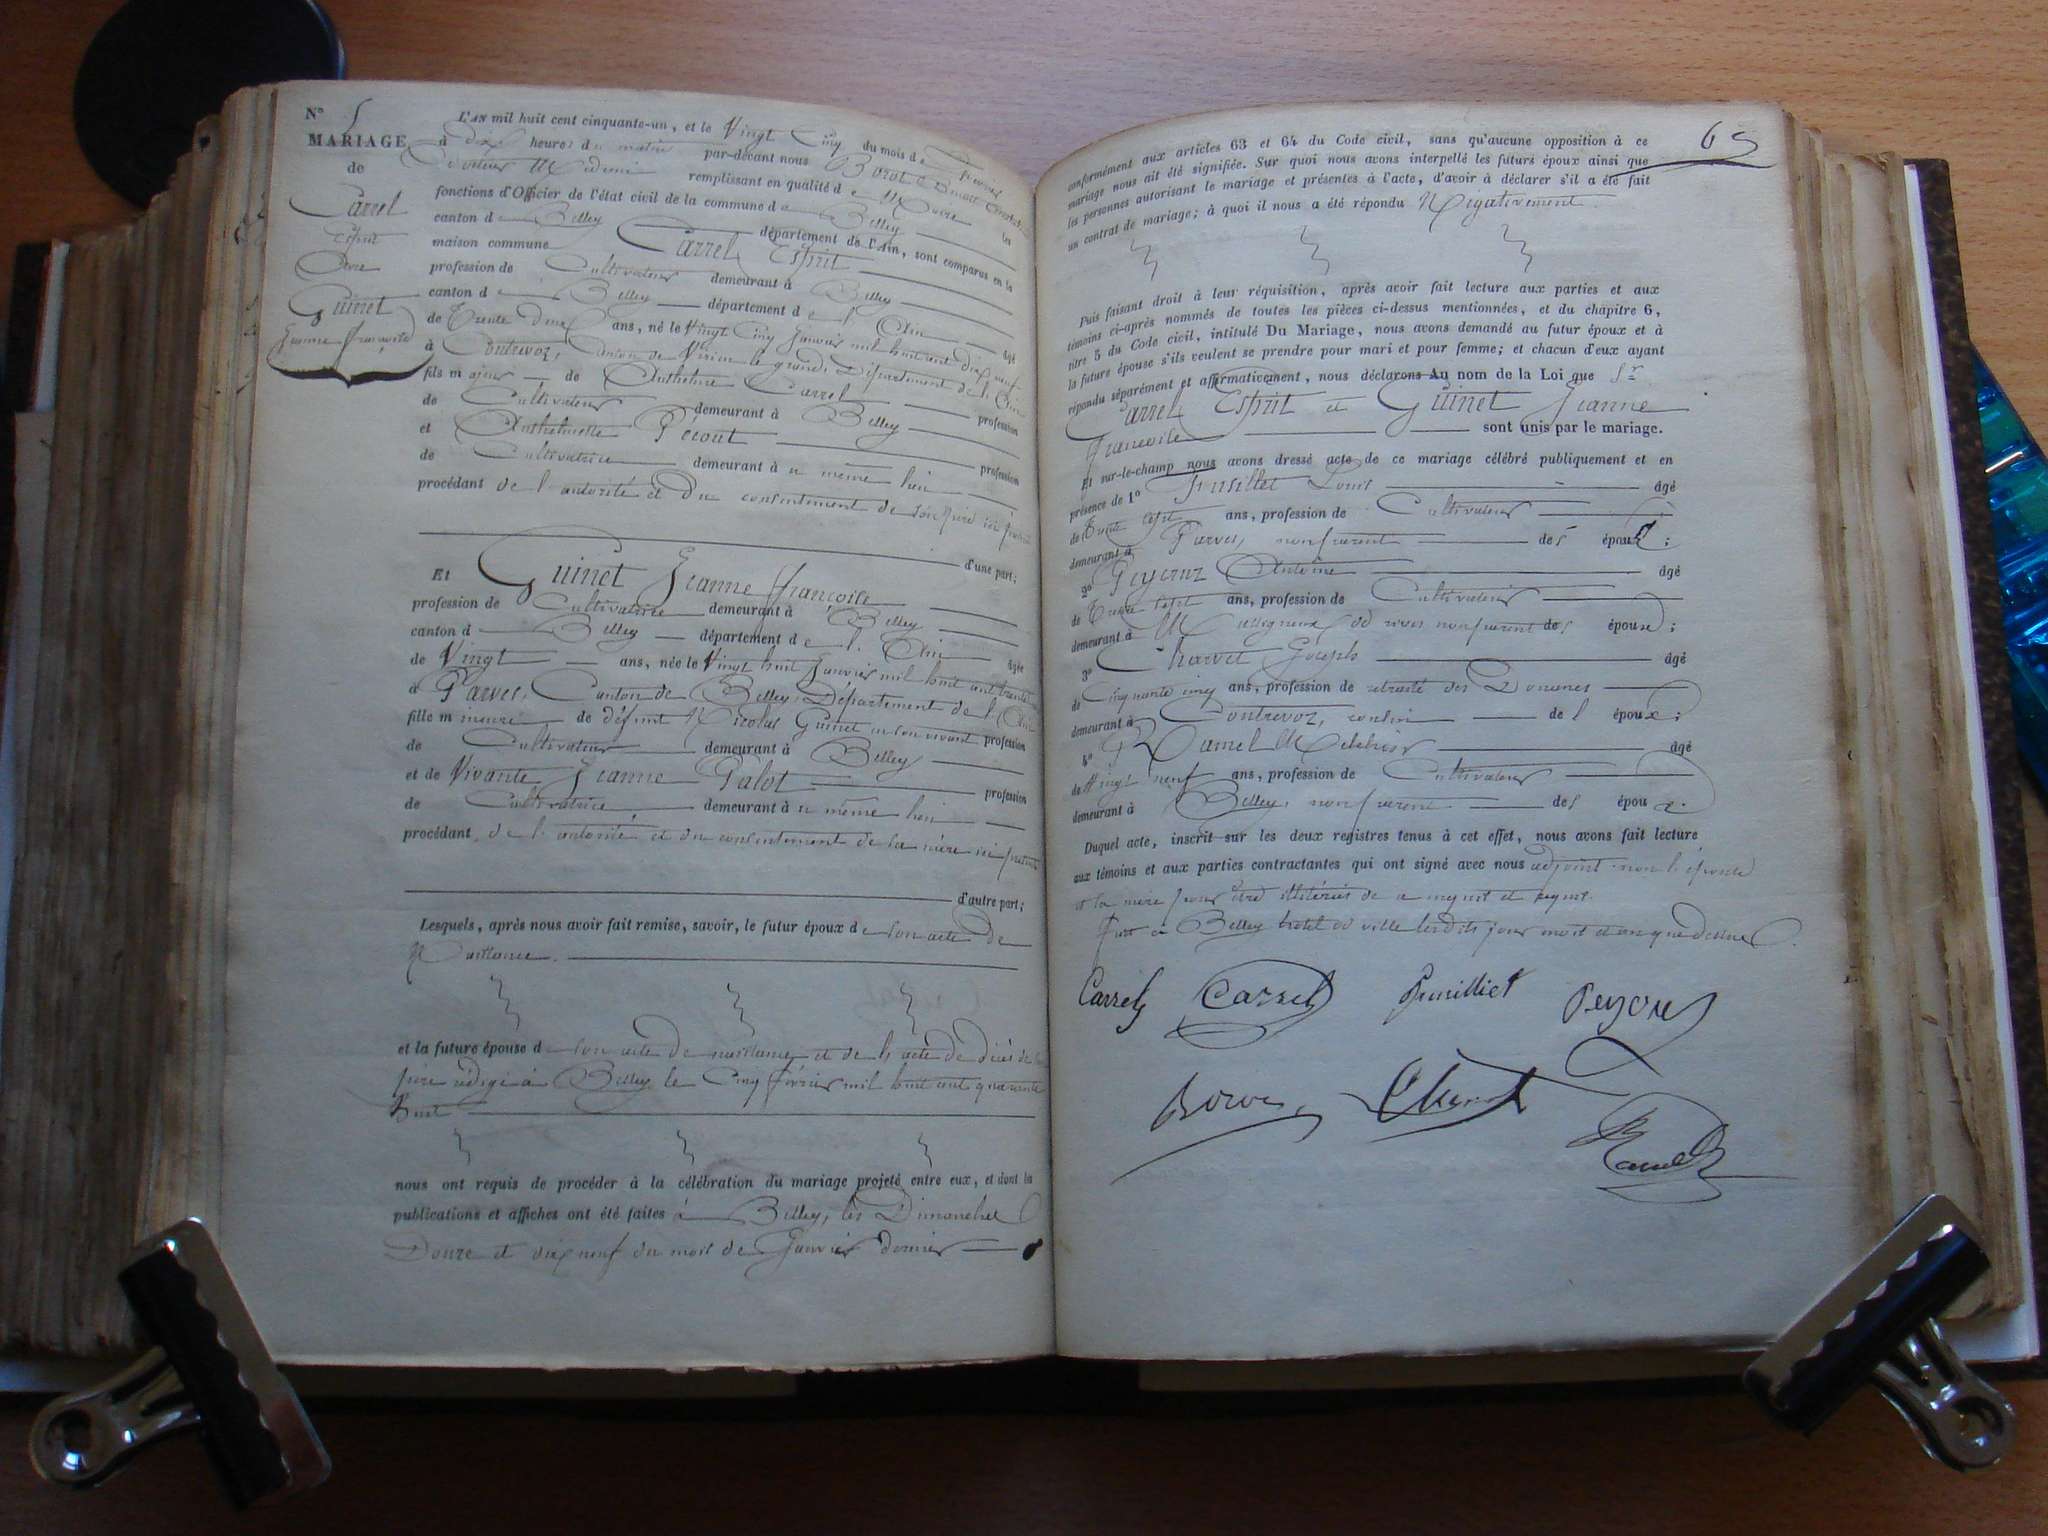 N° 5
MARIAGE
de
Carrel
Esprit
Avec
Guinet
Jeanne françoise
L'AN mil huit cent cinquante-un, et le Vingt Cinq du mois de
à dix heures du matin par-devant nous
remplissant en qualité de Maire les
fonctions d'Officier de l'état civil de la commune de Belley
canton de Belley département de l'Ain, sont comparus en la
maison commune Carrel Esprit
profession de Cultivateur demeurant à Belley
canton de Belley département de l'Ain âgé
de Trente deux ans, né le Vingt Cinq Janvier mil huit cent dix neuf
à Contrevoz, Canton de Virieu le grand, Département de l'Ain
fils majeur de Anthelme Carrel profession
de Cultivateur demeurant à Belley
et Anthelmette Pécout profession
de Cultivatrice demeurant à ce même lieu
procédant de l'autorité et du consentement de son père ici présent
d'une part;
Et Guinet Jeanne françoise
profession de Cultivatrice demeurant à Belley
canton d Belley département de l'Ain âgée
de Vingt ans, née le Vingt huit Janvier mil huit cent trente
à Parves, Canton de Belley, Département de l'Ain
fille mineure de défunt Nicolas Guinet en son vivant profession
de Cultivateur demeurant à Belley
et de Vivante Jeanne Palot profession
de Cultivatrice demeurant à ce même lieu
procédant de l'autorité et du consentement de sa mère ici présente
d'autre part;
Lesquels, après nous avoir fait remise, savoir, le futur époux de son acte de
Naissance.
et la future épouse de son acte de naissance et de l'acte de décès de son
père rédigé à Belley le Cinq février mil huit cent quarante
huit
nous ont requis de procéder à la célébration du mariage projeté entre eux, et dont les
publications et affiches ont été faites à Belley, les Dimanches
Douze et dix neuf du mois de Janvier dernier
65
conformément aux articles 63 et 64 du Code civil, sans qu'aucune opposition à ce
mariage nous ait été signifiée. Sur quoi nous avons interpellé les futurs époux ainsi que
les personnes autorisant le mariage et présentes à l'acte, d'avoir à déclarer s'il a été fait
un contrat de mariage; à quoi il nous a été répondu Négativement.
Puis faisant droit à leur réquisition, après avoir fait lecture aux parties et aux
témoins ci-après nommés de toutes les pièces ci-dessus mentionnées, et du chapitre 6,
titre 5 du Code civil, intitulé Du Mariage, nous avons demandé au futur époux et à
la future épouse s'ils veulent se prendre pour mari et pour femme; et chacun d'eux ayant
répondu séparément et affirmativement, nous déclarons Au nom de la Loi que Sr
Carrel Esprit et Guinet Jeanne
françoise sont unis par le mariage.
Et sur-le-champ nous avons dressé acte de ce mariage célébré publiquement et en
présence de 1° Louis âgé
de Trente sept ans, profession de Cultivateur
demeurant à Parves, non parent des époux;
2° Antoine âgé
de Trente sept ans, profession de Cultivateur
demeurant à non parent des époux;
3° Charvet Joseph âgé
de Cinquante cinq ans, profession de retraité des Douanes
demeurant à Contrevoz, cousin de l époux;
4° Ramel Melchior âgé
de Vingt neuf ans, profession de Cultivateur
demeurant à Belley, non parent des époux.
Duquel acte, inscrit sur les deux registres tenus à cet effet, nous avons fait lecture
aux témoins et aux parties contractantes qui ont signé avec nous adjoint non l'épouse
et la mère pour être illitérées de ce enquis et requis.
fait à Belley hotel de ville lesdits jour mois et an que dessus.
Carrel Carrel
Charvet
Ramel